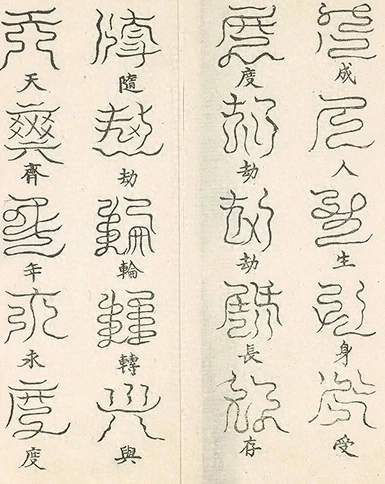 成人生身受
度劫劫長存
隨劫輪轉與
天齊年永度